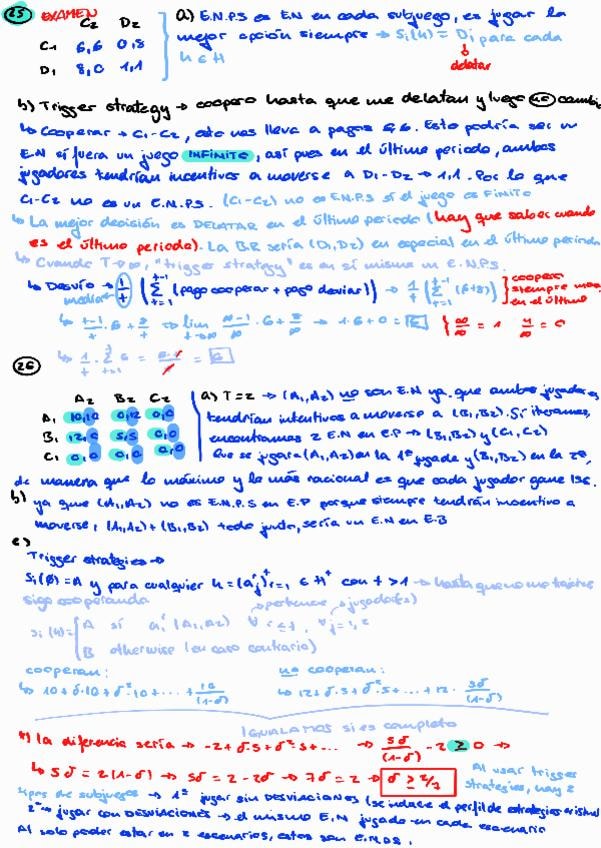 25 EXAMEN
C2 D2
C1 6,6 0,8
D1 8,0 1,1
a) E.N.P.S es E.N en cada subjuego, es jugar la
mejor opción siempre → Si(h) = Di para cada
h ∈ H
delatar
b) Trigger strategy → coopero hasta que me delatan y luego no cambio
↳ Cooperar → C1-C2, esto nos lleva a pagos 6,6. Esto podría ser un
E.N si fuera un juego INFINITO, así pues en el último periodo, ambos
jugadores tendrían incentivos a moverse a D1-D2 → 1,1. Por lo que
C1-C2 no es un E.N.P.S. (C1-C2) no es E.N.P.S si el juego es FINITO
↳ La mejor decisión es DELATAR en el último periodo (hay que saber cuando
es el último periodo). La BR sería (D1,D2) en especial en el último periodo
↳ Cuando T→∞, "trigger strategy" es en sí mismo un E.N.P.S.
↳ Desvío → 1/t (Σ t-1 t=1 (pago cooperar + pago desviar)) → 1/t (Σ t-1 t=1 (6+8)) } cooperar
siempre menos
en el último
↳ t-1/t · 6 + 8/t ⇒ lim t→∞ ∞-1/∞ · 6 + 8/∞ → 1·6+0 = 6 { ∞/∞ = 1
26
A2 B2 C2
A1 10,10 0,12 0,0
B1 12,0 5,5 0,0
C1 0,0 0,0 0,0
a) T=2 → (A1,A2) no son E.N ya que ambos jugadores
tendrían incentivos a moverse a (B1,B2). Si iteramos,
encontramos 2 E.N en E.P → (B1,B2) y (C1,C2)
que se jugara (A1,A2) en la 1ª jugada y (B1,B2) en la 2ª,
de manera que lo máximo y lo más racional es que cada jugador gane 15€.
b) ya que (A1,A2) no es E.N.P.S en E.P porque siempre tendrán incentivo a
moverse, (A1,A2)+(B1,B2) todo junto, sería un E.N en E.B
c)
Trigger strategies →
Si(∅) = A y para cualquier h = (aj)r=1 ∈ H con t>1 → hasta que no me traicionen
sigo cooperando
pertenece jugador(es)
si(h) = { A si (A1,A2) ∀ j=1,2
B otherwise (en caso contrario)
cooperan: no cooperan:
↳ 10+δ·10+δ²·10+...+ 10/(1-δ) ↳ 12+δ·5+δ²·5+...+12· 5δ/(1-δ)
IGUALAMOS si es completo
*) la diferencia sería → -2+δ·5+δ²5+... → 5δ/(1-δ) -2 ≥ 0 →
↳ 5δ = 2(1-δ) → 5δ = 2-2δ → 7δ = 2 → δ ≥ 2/7
Al usar trigger
strategies, hay 2
tipos de subjuegos → 1º jugar sin DESVIACIONES (se induce el perfil de estrategias
2º → jugar con DESVIACIONES → el mismo E.N jugado en cada escenario
Al solo poder estar en 2 escenarios, estos son E.N.P.S.